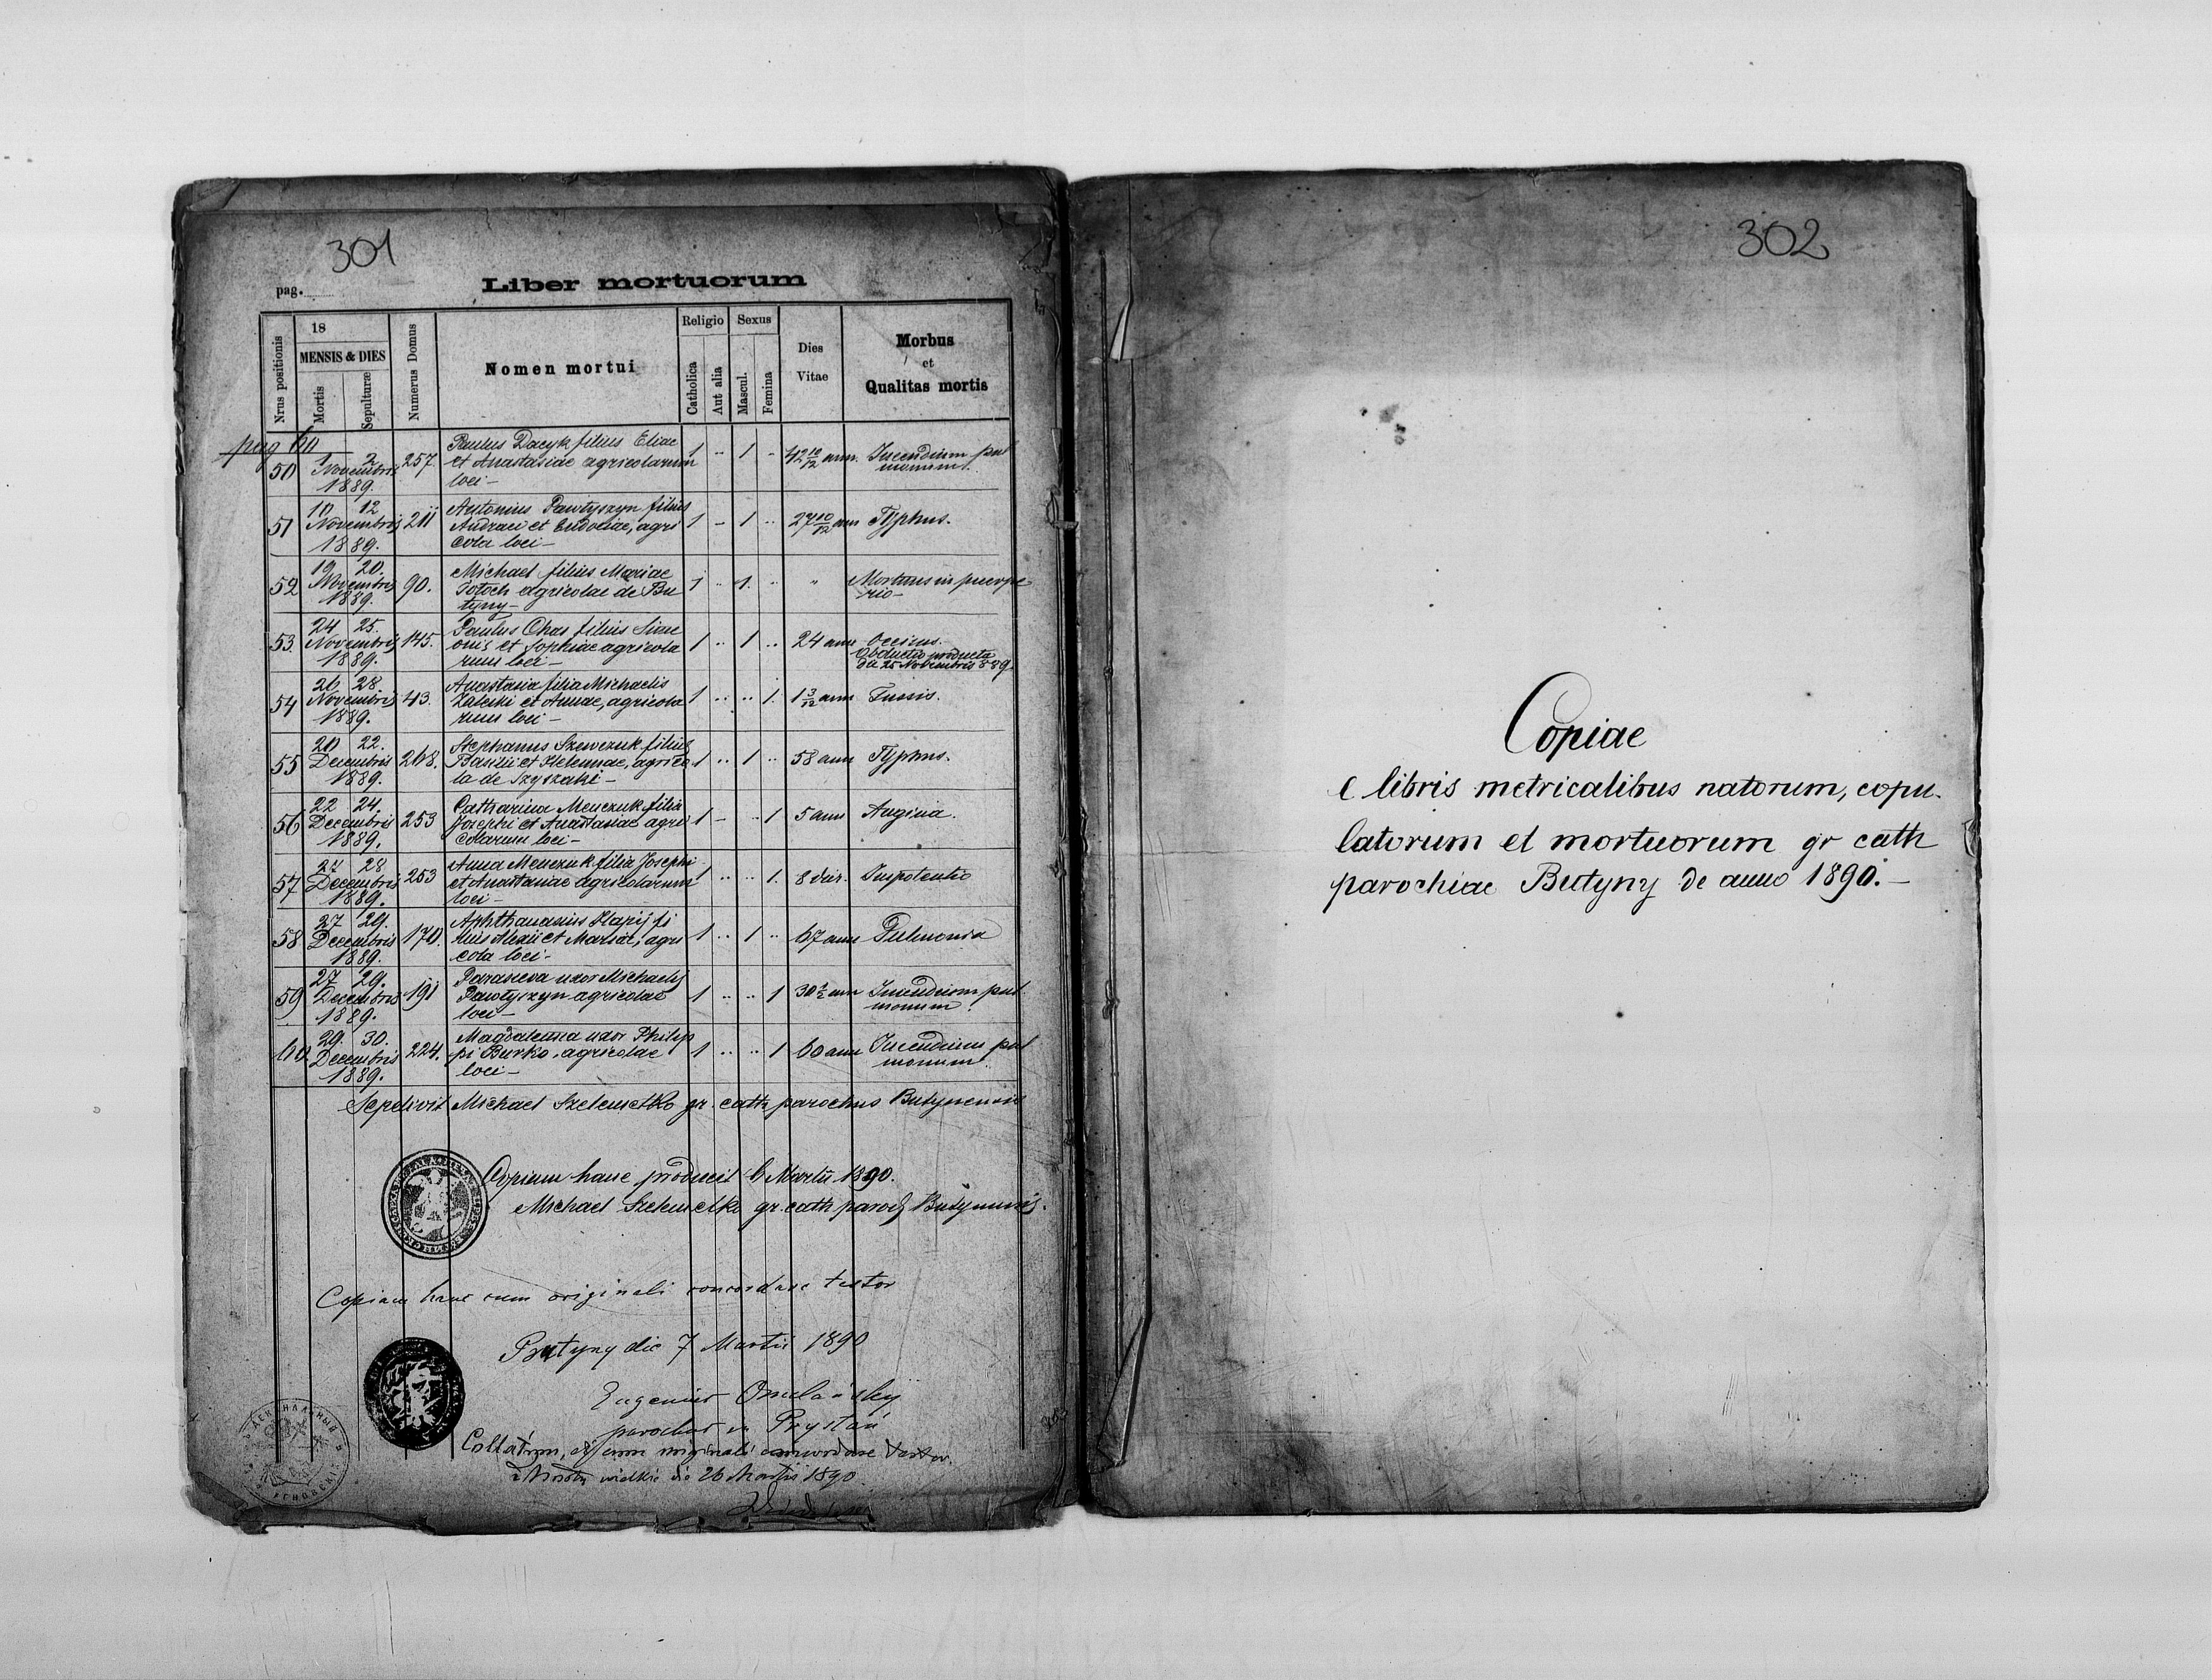 301
pag.
Liber mortuorum
Nrus positionis
18
MENSIS & DIES
Mortis
Sepulturæ
Numerus Domus
Nomen mortui
Religio
Catholica
Aut alia
Sexus
Mascul.
Femina
Dies
Vitae
Morbus
et
Qualitas mortis
pag 60
50 1 2 Novembris 1889. 257.
Paulus Dacyk filius Eliae
et Anastasiae agricolarum
loci –
1 .. 1 .. 42 10/12 ann. Incendium pul
monum.
51 10 12 Novembris 1889. 211
Antonius Pawłyszyn filius
Andreae et Eudociae, agri
cola loci –
1 – 1 .. 27 10/12 ann Typhus.
52 19 20. Novembris 1889. 90.
Michael filius Mariae
Potoch agricolae de Bu
tyny –
1 .. 1. .. " Mortuus in puerpe
rio –
53. 24 25. Novembris 1889. 145.
Paulus Chas filius Sime
onis et Sophiae agricola
rum loci –
1 .. 1 .. 24 ann Occisus.
Obductio producta
die 25 Novembris 889.
54 26 28 Novembris 1889. 43.
Anastasia filia Michaelis
Zaleski et Annae, agricola
rum loci –
1 .. .. 1. 1 3/12 ann Tussis.
55 20 22. Decembris 1889. 268.
Stephanus Szewczuk filius
Basilii et Helennae, agrico
la de Szyszaki –
1 .. 1 .. 58 ann Typhus.
56 22 24. Decembris 1889. 253
Catharina Menczuk filia
Josephi et Anastasiae agri
colarum loci –
1 – .. 1 5 ann Angina.
57 27 28 Decembris 1889. 253
Anna Menczuk filia Josephi
et Anastasiae agricolarum
loci –
1 .. .. 1. 8 dier. Impotentio
58 27 29. Decembris 1889. 170.
Aphthanasius
lius Alexii et Mariae, agri
cola loci –
1 .. 1 .. 67 ann Pulmonia
59 27 29. Decembris 1889. 191
Parasceva uxor Michaelis
Pawłyszyn agricolae
loci –
1 .. .. 1 30 ann Incendium pul
monum.
60 29. 30. Decembris 1889. 224.
Magdalenna uxor Philip
pi Burko, agricolae
loci –
1 .. .. 1 60 ann Incendium pul
monum.
Sepelivit Michael Szelemetko gr. cath parochus Butynensis
Copiam hanc producit 6 Martii 1890.
Michael Szelemetko gr. cath paroch Butynensis.
Copiam hanc cum originali concordare testor
Butyny die 7 Martii 1890
Eugenius
parochus in Prystań
Collatum, et cum originali concordare testor.
Mosty wielkie die 26 Martii 1890
302
Copiae
e libris metricalibus natorum, copu-
latorum et mortuorum gr cath
parochiae Butyny de anno 1890. –